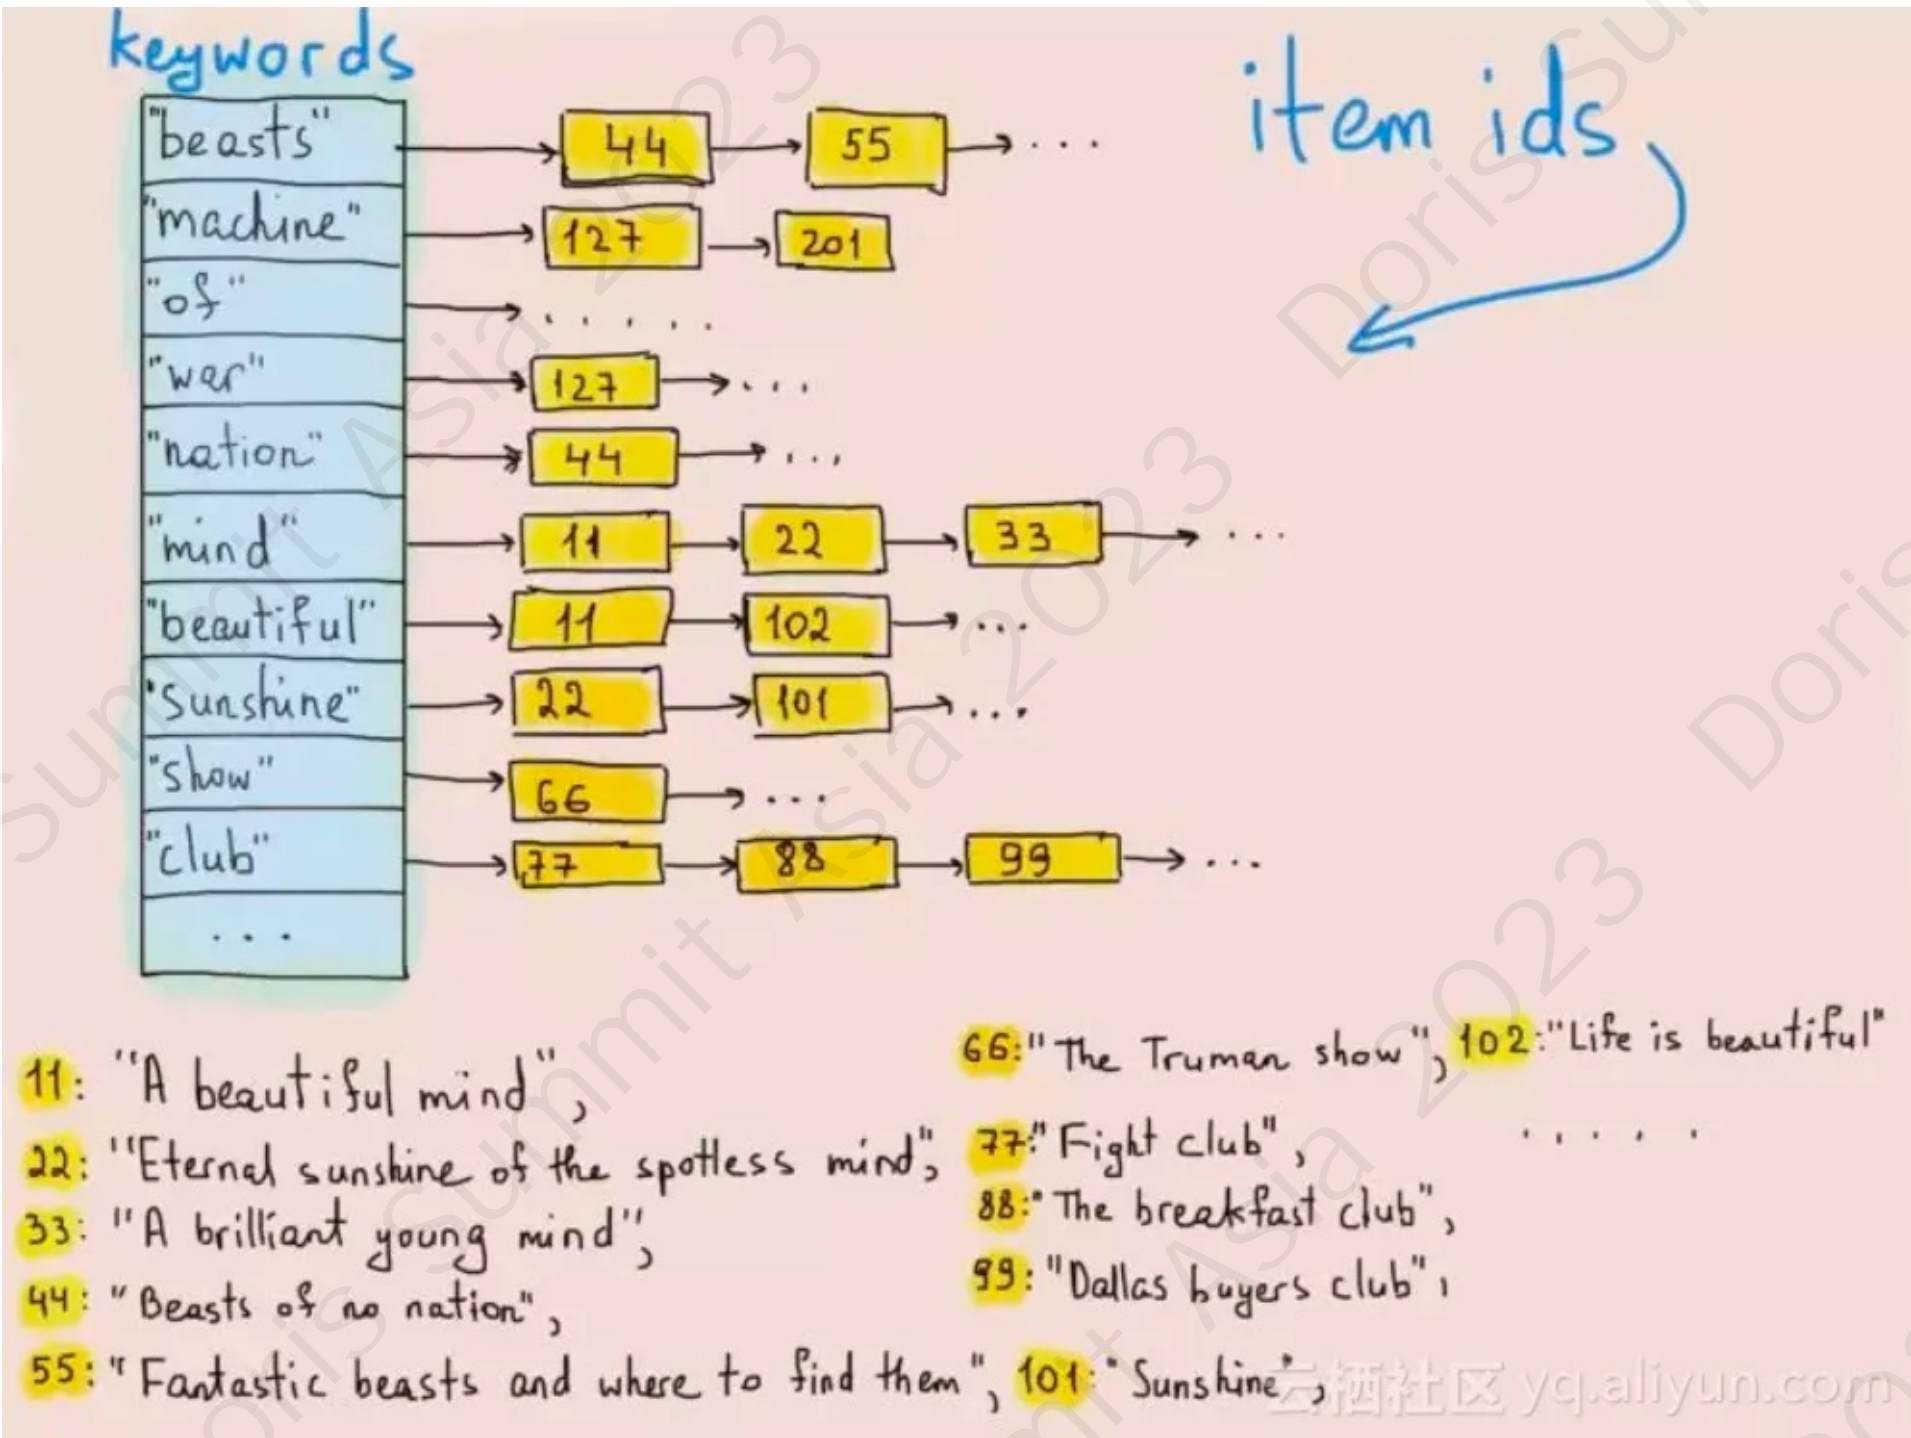 keywords
item ids
"beasts" 44 55 ...
"machine" 127 201
"of" .....
"war" 127 ...
"nation" 44 ...
"mind" 11 22 33 ...
"beautiful" 11 102 ...
"sunshine" 22 101 ...
"show" 66 ...
"club" 77 88 99 ...
...
11: "A beautiful mind",
22: "Eternal sunshine of the spotless mind",
33: "A brilliant young mind",
44: "Beasts of no nation",
55: "Fantastic beasts and where to find them", 101: "Sunshine",
66: "The Truman show", 102: "Life is beautiful"
77: "Fight club", .....
88: "The breakfast club",
99: "Dallas buyers club",
云栖社区 yq.aliyun.com
Doris Summit Asia 2023